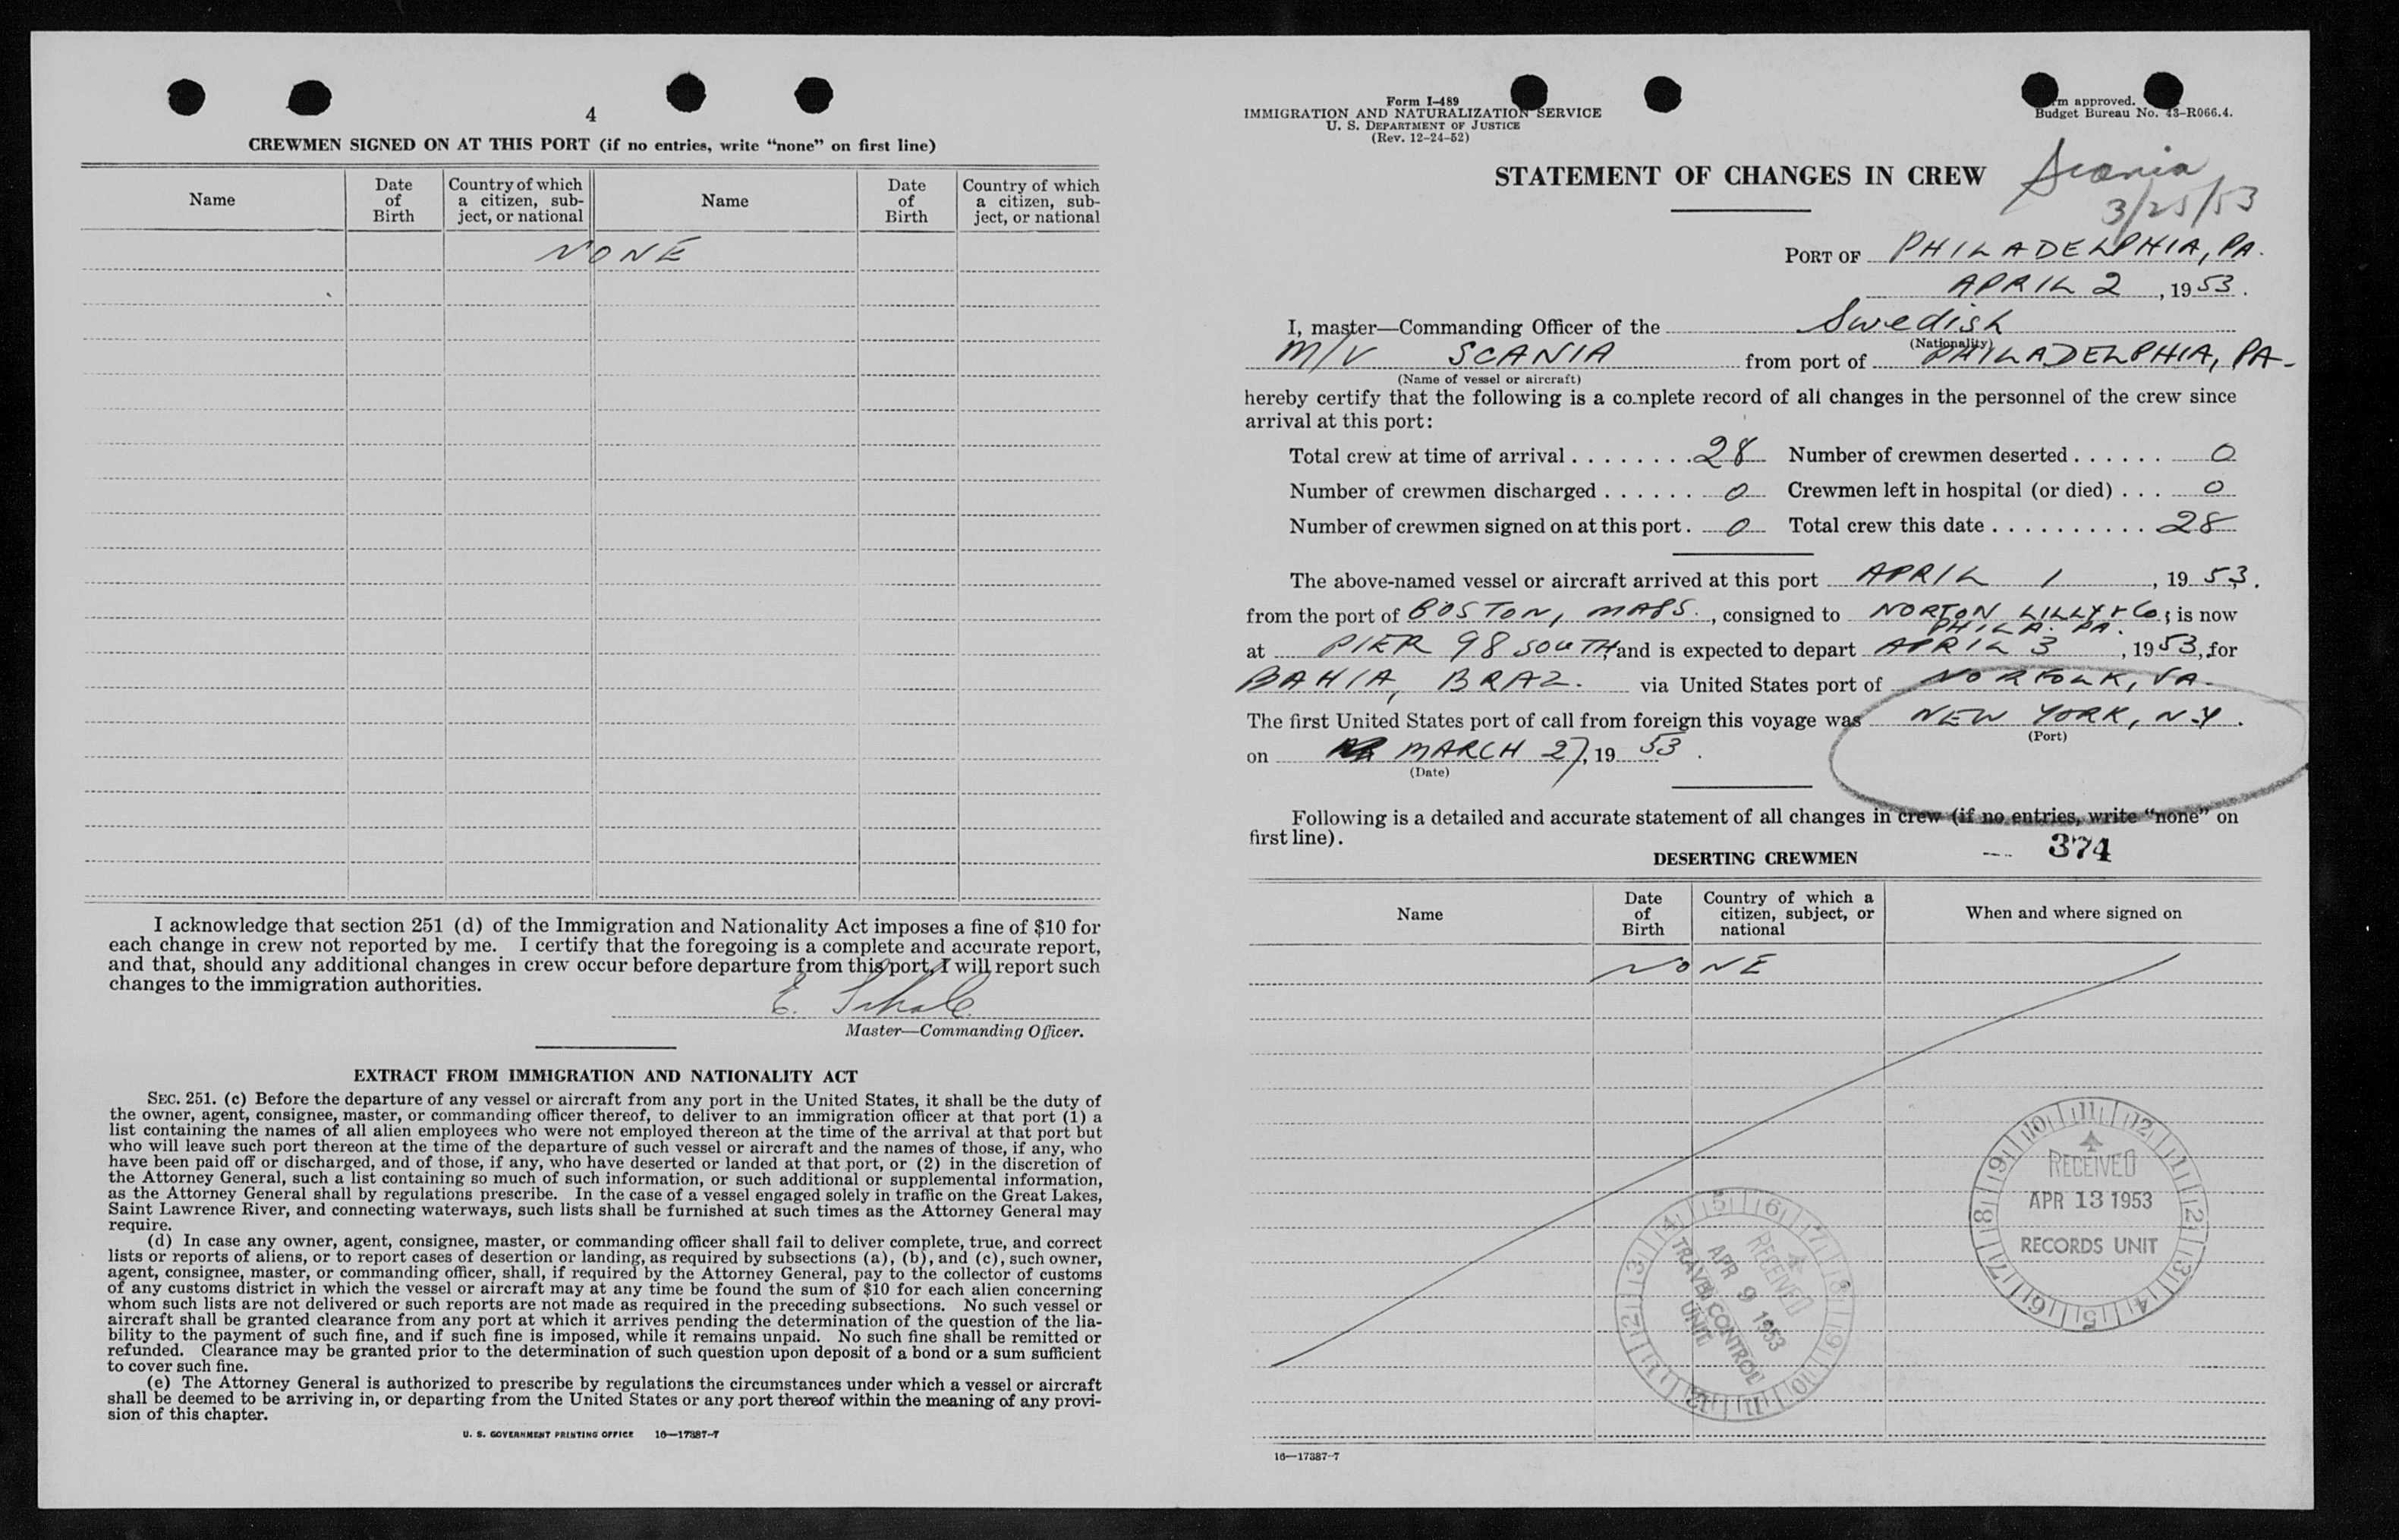 4
CREWMEN SIGNED ON AT THIS PORT (if no entries, write “none” on first line)
Name
Date of Birth
Country of which a citizen, subject, or national
Name
Date of Birth
Country of which a citizen, subject, or national
NONE
I acknowledge that section 251 (d) of the Immigration and Nationality Act imposes a fine of $10 for
each change in crew not reported by me. I certify that the foregoing is a complete and accurate report,
and that, should any additional changes in crew occur before departure from this port, I will report such
changes to the immigration authorities.
E.
Master—Commanding Officer.
EXTRACT FROM IMMIGRATION AND NATIONALITY ACT
SEC. 251. (c) Before the departure of any vessel or aircraft from any port in the United States, it shall be the duty of
the owner, agent, consignee, master, or commanding officer thereof, to deliver to an immigration officer at that port (1) a
list containing the names of all alien employees who were not employed thereon at the time of the arrival at that port but
who will leave such port thereon at the time of the departure of such vessel or aircraft and the names of those, if any, who
have been paid off or discharged, and of those, if any, who have deserted or landed at that port, or (2) in the discretion of
the Attorney General, such a list containing so much of such information, or such additional or supplemental information,
as the Attorney General shall by regulations prescribe. In the case of a vessel engaged solely in traffic on the Great Lakes,
Saint Lawrence River, and connecting waterways, such lists shall be furnished at such times as the Attorney General may
require.
(d) In case any owner, agent, consignee, master, or commanding officer shall fail to deliver complete, true, and correct
lists or reports of aliens, or to report cases of desertion or landing, as required by subsections (a), (b), and (c), such owner,
agent, consignee, master, or commanding officer, shall, if required by the Attorney General, pay to the collector of customs
of any customs district in which the vessel or aircraft may at any time be found the sum of $10 for each alien concerning
whom such lists are not delivered or such reports are not made as required in the preceding subsections. No such vessel or
aircraft shall be granted clearance from any port at which it arrives pending the determination of the question of the lia-
bility to the payment of such fine, and if such fine is imposed, while it remains unpaid. No such fine shall be remitted or
refunded. Clearance may be granted prior to the determination of such question upon deposit of a bond or a sum sufficient
to cover such fine.
(e) The Attorney General is authorized to prescribe by regulations the circumstances under which a vessel or aircraft
shall be deemed to be arriving in, or departing from the United States or any port thereof within the meaning of any provi-
sion of this chapter.
U. S. GOVERNMENT PRINTING OFFICE 16—17387-7
Form I-489
IMMIGRATION AND NATURALIZATION SERVICE
U. S. DEPARTMENT OF JUSTICE
(Rev. 12-24-52)
rm approved.
Budget Bureau No. 43-R066.4.
STATEMENT OF CHANGES IN CREW
Scania
3/25/53
PORT OF PHILADELPHIA, PA.
APRIL 2, 1953.
I, master—Commanding Officer of the Swedish
(Nationality)
M/V SCANIA from port of PHILADELPHIA, PA-
(Name of vessel or aircraft)
hereby certify that the following is a complete record of all changes in the personnel of the crew since
arrival at this port:
Total crew at time of arrival . . . . . . . . 28 Number of crewmen deserted . . . . . . 0
Number of crewmen discharged . . . . . . 0 Crewmen left in hospital (or died) . . . 0
Number of crewmen signed on at this port . 0 Total crew this date . . . . . . . . . . 28
The above-named vessel or aircraft arrived at this port APRIL 1, 1953.
from the port of BOSTON, MASS., consigned to NORTON LILLY & Co; is now
PHILA. PA.
at PIER 98 SOUTH, and is expected to depart APRIL 3, 1953, for
BAHIA, BRAZ. via United States port of NORFOLK, VA.
The first United States port of call from foreign this voyage was NEW YORK, N.Y.
(Port)
on MARCH 27, 1953.
(Date)
Following is a detailed and accurate statement of all changes in crew (if no entries, write “none” on
first line).
374
DESERTING CREWMEN
Name
Date of Birth
Country of which a citizen, subject, or national
When and where signed on
NONE
10 11 12 1 2 3 4 5 6 7 8 9
RECEIVED
APR 13 1953
RECORDS UNIT
5 6 7 8 9 10 11 12 11 12 3 4
RECEIVED
APR 9 1953
TRAVEL CONTROL
UNIT
16—17387-7